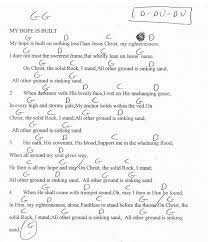 G-G D-DU-DU
MY HOPE IS BUILT
G D C D G
My hope is built on nothing less Than Jesus Christ, my righteousness;
G D C D G
I dare not trust the sweetest frame, But wholly lean on Jesus' name.
G C G D
On Christ, the solid Rock, I stand; All other ground is sinking sand,
G C D G
All other ground is sinking sand.
G D C D G
2 When darkness veils His lovely face, I rest on His unchanging grace;
G D C D G
In every high and stormy gale, My anchor holds within the veil. On
C G D
Christ, the solid Rock, I stand; All other ground is sinking sand,
G C D G
All other ground is sinking sand.
G D C D
3 His oath, His covenant, His blood, Support me in the whelming flood;
G D
When all around my soul gives way,
C D G G C G
He then is all my hope and stay. On Christ, the solid Rock, I stand;
D G C D G
All other ground is sinking sand, All other ground is sinking sand.
G D C D G
4 When He shall come with trumpet sound, Oh, may I then in Him be found.
G D C D G
In Him, my righteousness, alone, Faultless to stand before the throne. On Christ, the
C G D G
solid Rock, I stand; All other ground is sinking sand, All other ground is sinking
sand. G